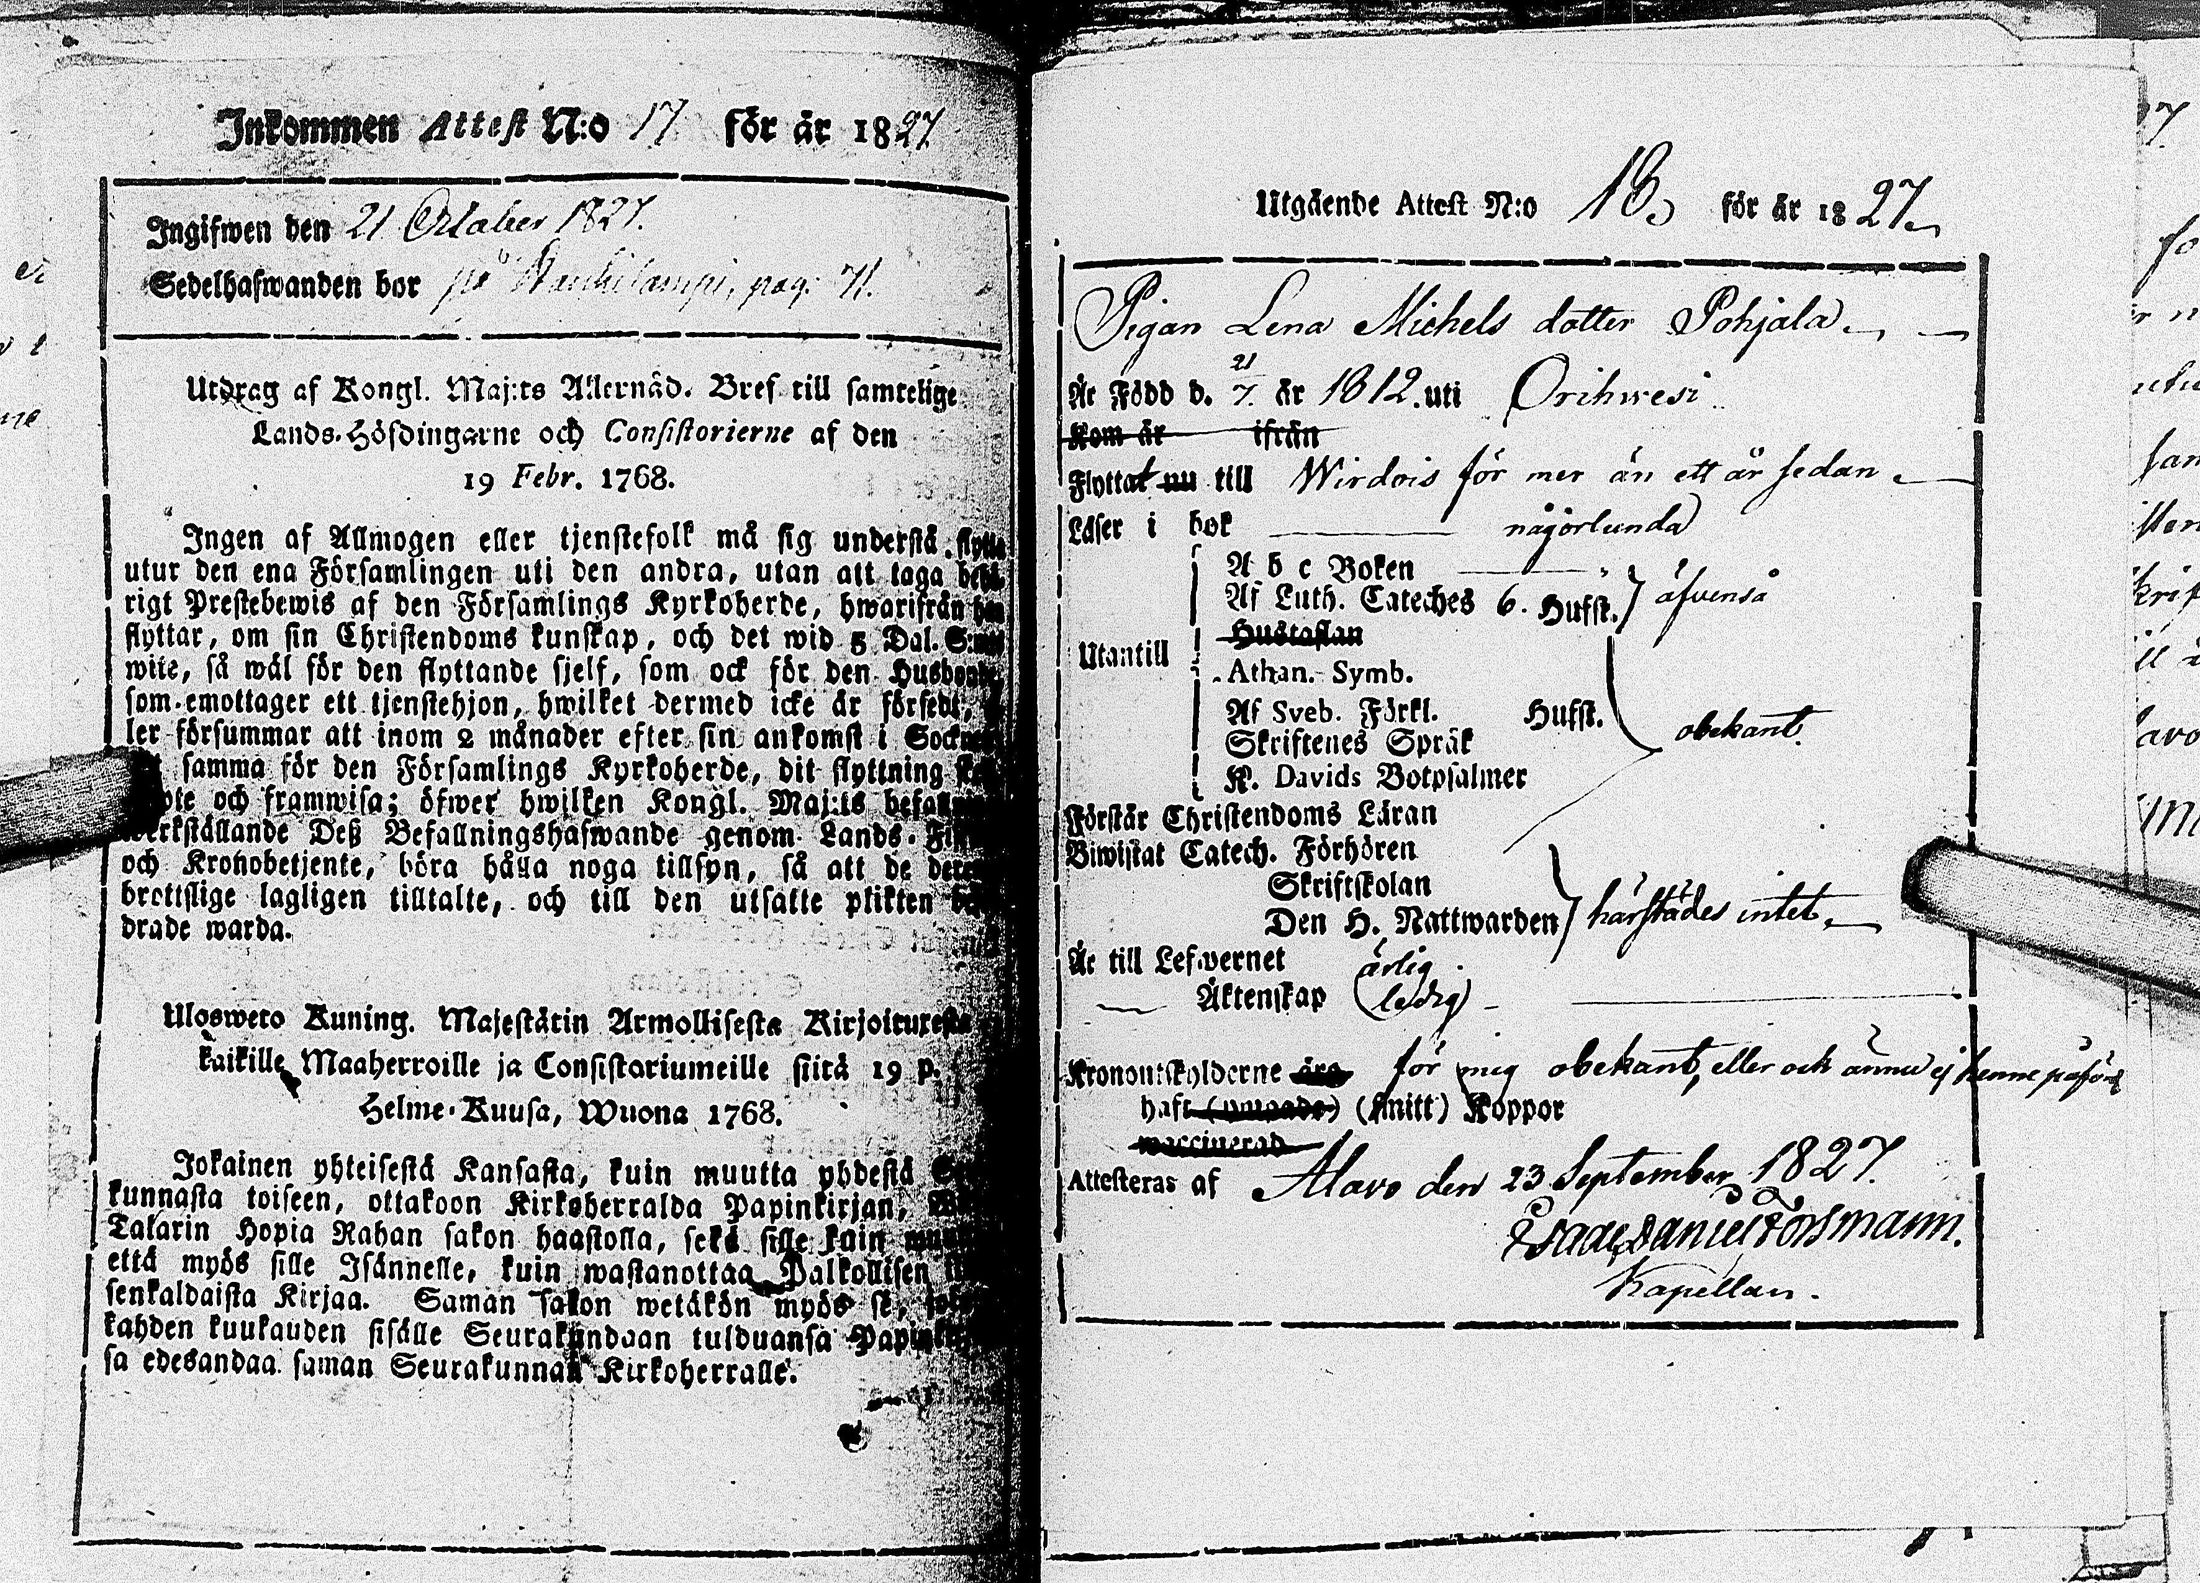 Inkommen Attest N:o 17 för år 1827
Ingifwen den 21 October 1827.
Sedelhafwanden bor på Kauhilampi, pag. 71.
Utdrag af Kongl. Maj:ts Allernåd. Bref till samtelige
Lands-Höfdingarne och Consistorierne af den
19 Febr. 1768.
Ingen af Allmogen eller tjenstefolk må sig understå, flytta
utur den ena Församlingen uti den andra, utan att taga behö-
rigt Prestebewis af den Församlings Kyrkoherde, hwarifrån han
flyttar, om sin Christendoms kunskap, och det wid 5 Dal. S:mt
wite, så wäl för den flyttande sjelf, som ock för den Husbonde,
som emottager ett tjenstehjon, hwilket dermed icke är försedt,
ler försummar att inom 2 månader efter sin ankomst i Socknen
samma för den Församlings Kyrkoherde, dit flyttning
och framwisa; öfwer hwilken Kongl. Maj:ts befallning
werkställande Deß Befallningshafwande genom Lands-
och Kronobetjente, böra hålla noga tillsyn, så att de
brottslige lagligen tilltalte, och till den utsatte plikten
drade warda.
Ulosweto Kuning. Majestätin Armollisesta Kirjoituxesta
kaikille Maaherroille ja Consistoriumeille siitä 19 p.
Helme-Kuusa, Wuona 1768.
Jokainen yhteisestä Kansasta, kuin muutta yhdestä
kunnasta toiseen, ottakoon Kirkoherralda Papinkirjan,
Talarin Hopia Rahan sakon haastolla, sekä sille kuin
että myös sille Isännelle, kuin wastanottaa Palkollisen
senkaldaista Kirjaa. Saman sakon wetäkön myös se,
kahden kuukauden sisälle Seurakundaan tulduansa
sa edesandaa saman Seurakunnan Kirkoherralle.
Utgående Attest N:o 18, för år 1827.
Pigan Lena Michels dotter Pohjala.
Är Född d. 21/7. år 1812. uti Orihwesi
Kom år ifrån
Flyttat nu till Wirdois för mer än ett år sedan
Läser i bok någorlunda
A b c Boken
Af Luth. Cateches 6. Hufst. äfvenså
Hustaflan
Utantill
Athan. Symb.
Af Sveb. Förkl. Hufst.
obekant.
Skriftenes Språk
K. Davids Botpsalmer
Förstår Christendoms Läran
Biwistat Catech. Förhören
Skriftskolan
Den H. Nattwarden härstädes intet
Är till Lefwernet ärlig
Äktenskap (ledig)
Kronoutskylderne äro för mig obekant, eller ock ännu ej henne påförd
haft (smitt) Koppor
waccinerad
Attesteras af Alavo den 23 September 1827.
Isaac Daniel Forsmann.
Kapellan.